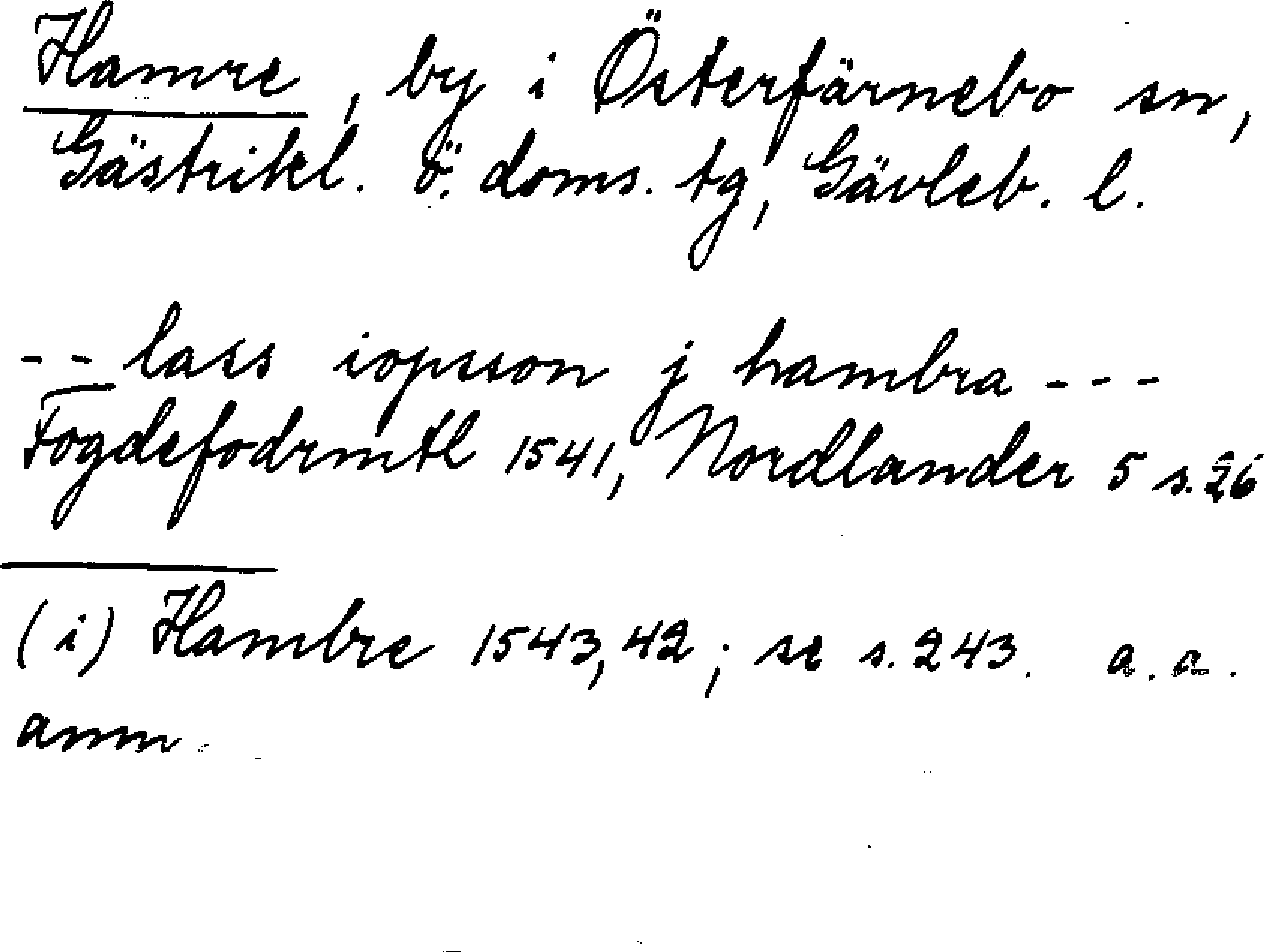 Hamre, by i Österfärnebo sn,
Gästrikl. ö. doms. tg, Gävleb. l.
-- lass iopsson j hambra ---
Fogdefodrmtl 1541, Nordlander 5 s. 26
(i) Hambre 1543, 42; se s. 243. a. a.
anm.